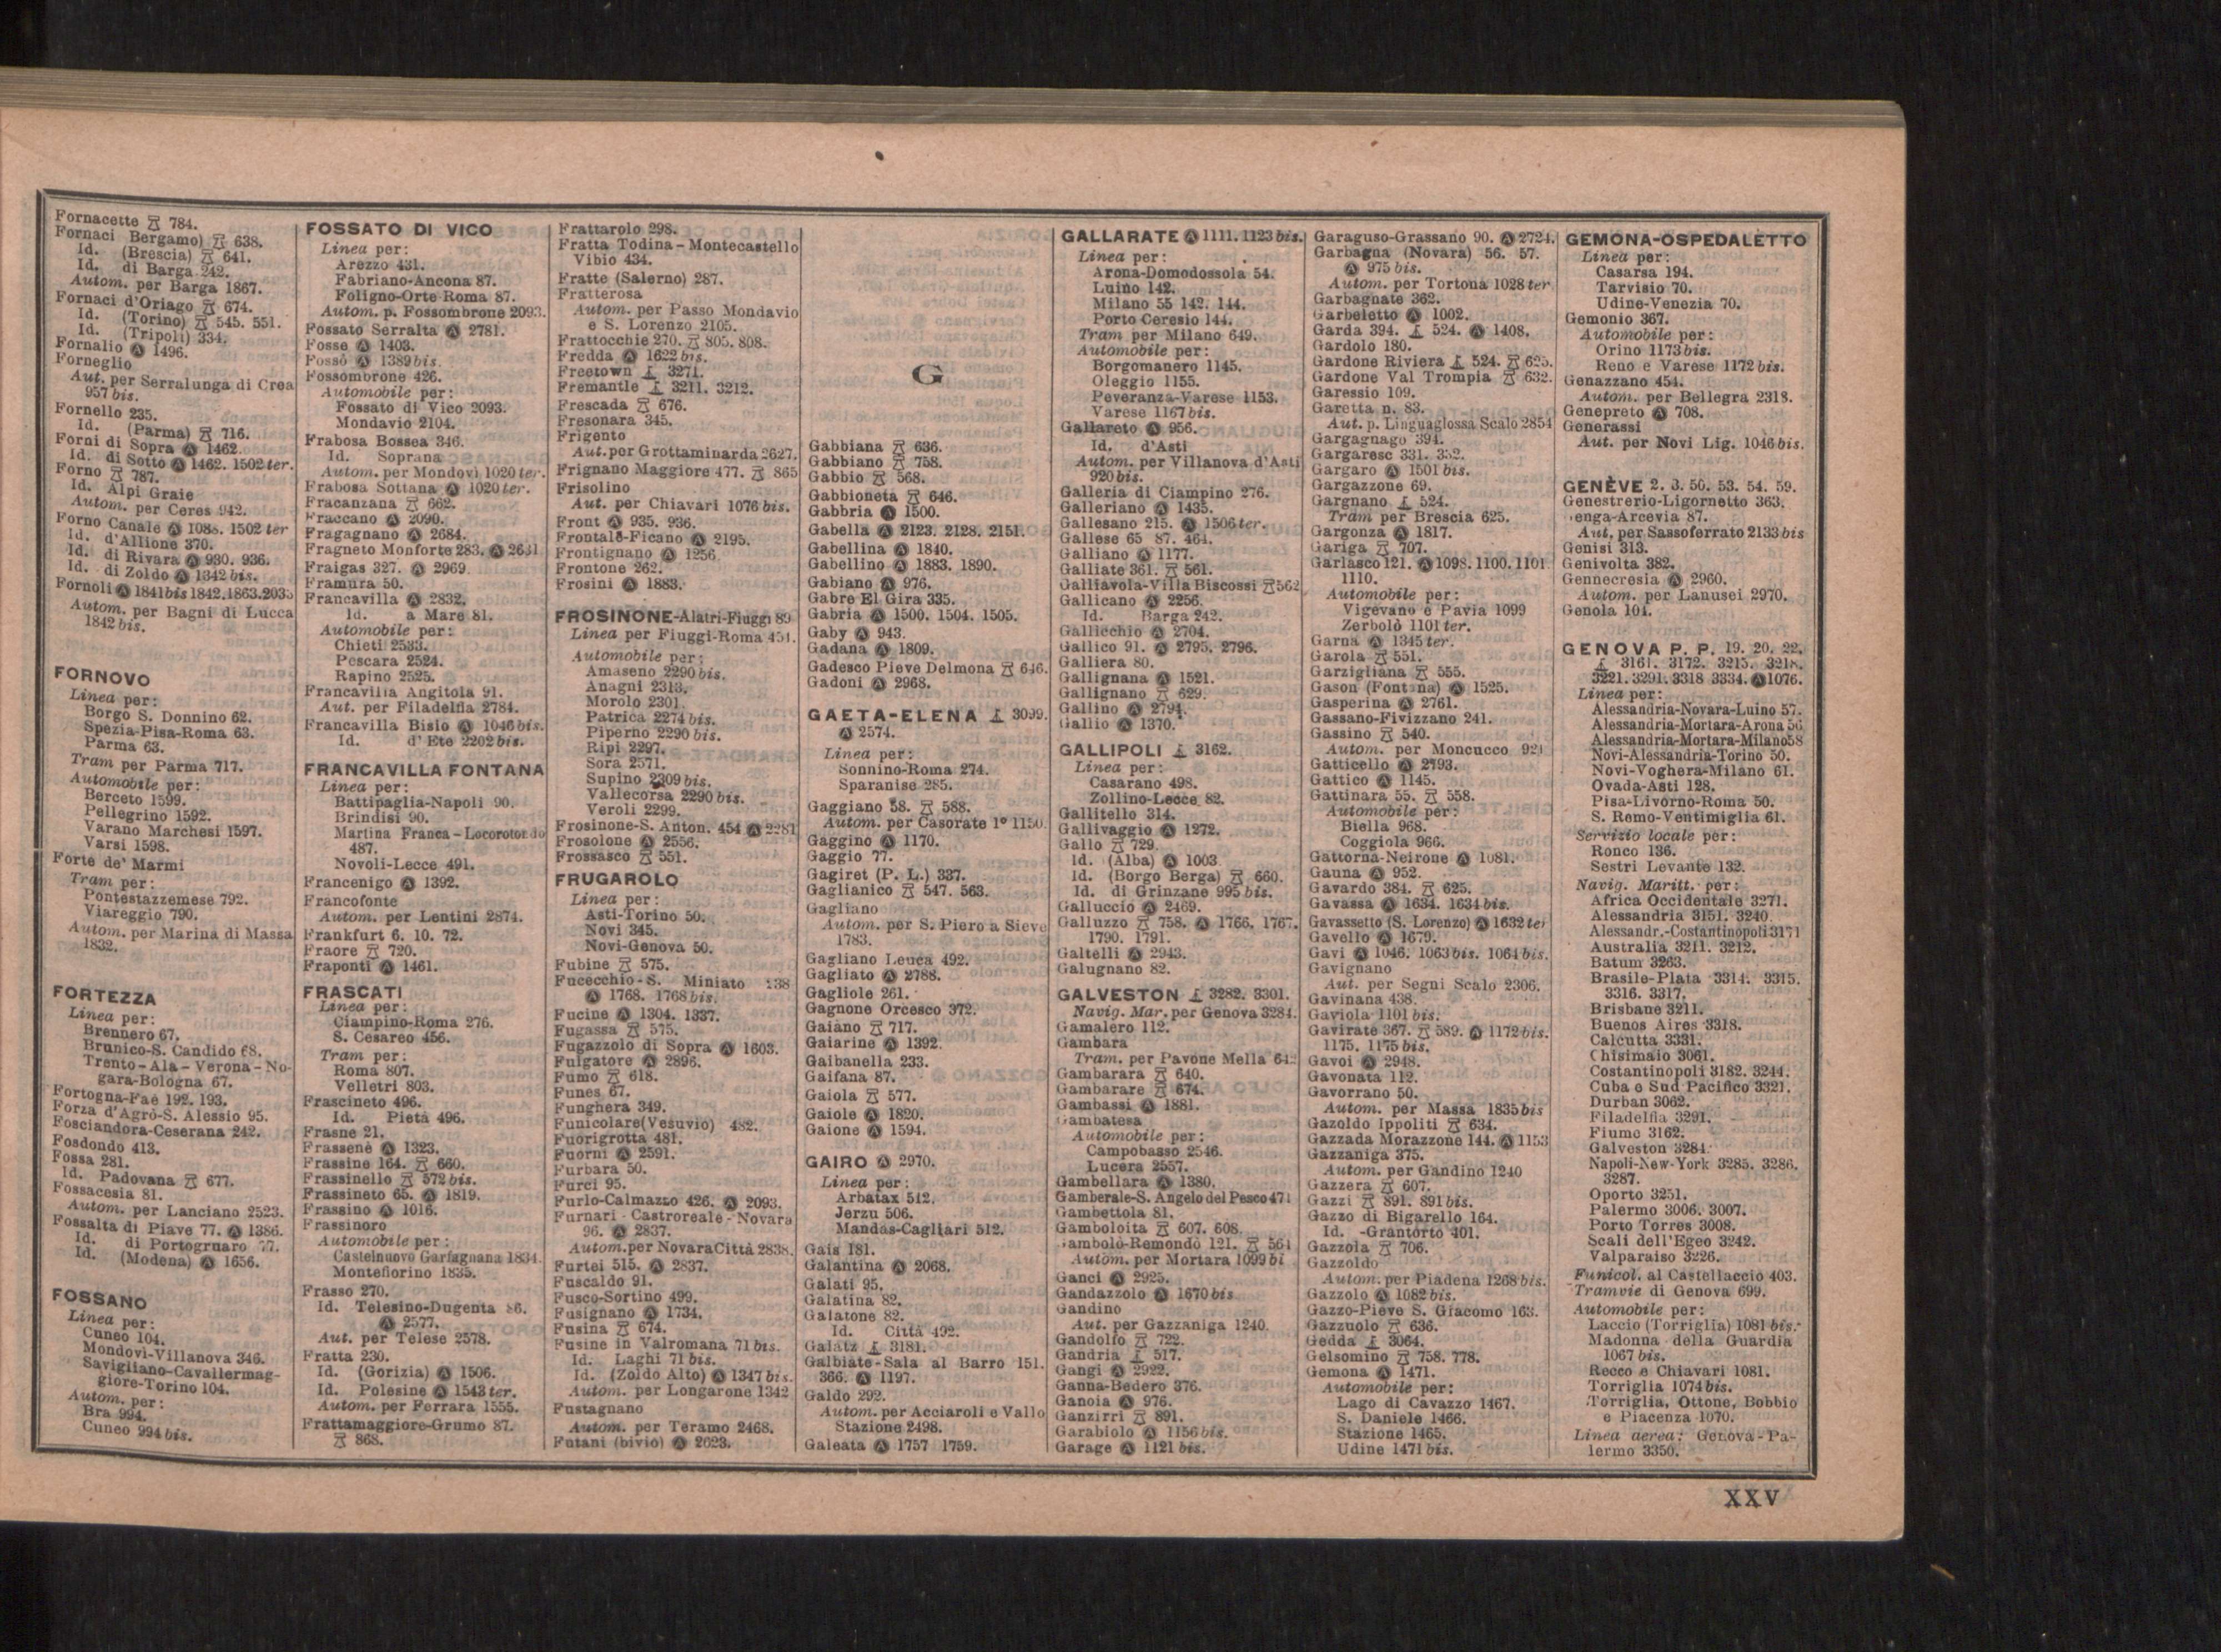 Fornacette 784.
Fornaci Bergamo) 638.
Id. (Brescia) 641.
Id. di Barga 242.
Autom. per Barga 1867.
Fornaci d'Oriago 674.
Id. (Torino) 545. 551.
Id. (Tripoli) 334.
Fornalio Ⓐ 1496.
Forneglio
Aut. per Serralunga di Crea
957 bis.
Fornello 235.
Id. (Parma) 716.
Forni di Sopra Ⓐ 1462.
Id. di Sotto Ⓐ 1462. 1502 ter.
Forno 787.
Id. Alpi Graie
Autom. per Ceres 942.
Forno Canale Ⓐ 1088. 1502 ter
Id. d'Allione 370.
Id. di Rivara Ⓐ 930. 936.
Id. di Zoldo Ⓐ 1342 bis.
Fornoli Ⓐ 1841 bis 1842. 1863. 2035
Autom. per Bagni di Lucca
1842 bis.
FORNOVO
Linea per:
Borgo S. Donnino 62.
Spezia-Pisa-Roma 63.
Parma 63.
Tram per Parma 717.
Automobile per:
Berceto 1599.
Pellegrino 1592.
Varano Marchesi 1597.
Varsi 1598.
Forte de' Marmi
Tram per:
Pontestazzemese 792.
Viareggio 790.
Autom. per Marina di Massa
1832.
FORTEZZA
Linea per:
Brennero 67.
Brunico-S. Candido 68.
Trento-Ala-Verona-No-
gara-Bologna 67.
Fortogna-Faè 192. 193.
Forza d'Agrò-S. Alessio 95.
Fosciandora-Ceserana 242.
Fosdondo 413.
Fossa 281.
Id. Padovana 677.
Fossacesia 81.
Autom. per Lanciano 2523.
Fossalta di Piave 77. Ⓐ 1386.
Id. di Portogruaro 77.
Id. (Modena) Ⓐ 1656.
FOSSANO
Linea per:
Cuneo 104.
Mondovì-Villanova 346.
Savigliano-Cavallermag-
giore-Torino 104.
Autom. per:
Bra 994.
Cuneo 994 bis.
FOSSATO DI VICO
Linea per:
Arezzo 431.
Fabriano-Ancona 87.
Foligno-Orte Roma 87.
Autom. p. Fossombrone 2093.
Fossato Serralta Ⓐ 2781.
Fosse Ⓐ 1403.
Fossò Ⓐ 1389 bis.
Fossombrone 426.
Automobile per:
Fossato di Vico 2093.
Mondavio 2104.
Frabosa Bossea 346.
Id. Soprana
Autom. per Mondovì 1020 ter.
Frabosa Sottana Ⓐ 1020 ter.
Fracanzana 662.
Fraccano Ⓐ 2090.
Fragagnano Ⓐ 2684.
Fragneto Monforte 283. Ⓐ 2631
Fraigas 327. Ⓐ 2969
Framura 50.
Francavilla Ⓐ 2832.
Id. a Mare 81.
Automobile per:
Chieti 2533.
Pescara 2524.
Rapino 2525.
Francavilla Angitola 91.
Aut. per Filadelfia 2784.
Francavilla Bisio Ⓐ 1046 bis.
Id. d'Ete 2202 bis.
FRANCAVILLA FONTANA
Linea per:
Battipaglia-Napoli 90.
Brindisi 90.
Martina Franca-Locorotondo
487.
Novoli-Lecce 491.
Francenigo Ⓐ 1392.
Francofonte
Autom. per Lentini 2874.
Frankfurt 6. 10. 72.
Fraore 720.
Fraponti Ⓐ 1461.
FRASCATI
Linea per:
Ciampino-Roma 276.
S. Cesareo 456.
Tram per:
Roma 807.
Velletri 803.
Frascineto 496.
Id. Pietà 496.
Frasne 21.
Frassenè Ⓐ 1323.
Frassine 164. 660.
Frassinello 572 bis.
Frassineto 65. Ⓐ 1819.
Frassino Ⓐ 1016.
Frassinoro
Automobile per:
Castelnuovo Garfagnana 1834.
Montefiorino 1835.
Frasso 270.
Id. Telesino-Dugenta 86.
Ⓐ 2577.
Aut. per Telese 2578.
Fratta 230.
Id. (Gorizia) Ⓐ 1506.
Id. Polesine Ⓐ 1543 ter.
Autom. per Ferrara 1555.
Frattamaggiore-Grumo 87.
868.
Frattarolo 298.
Fratta Todina-Montecastello
Vibio 434.
Fratte (Salerno) 287.
Fratterosa
Autom. per Passo Mondavio
e S. Lorenzo 2105.
Frattocchie 270. 805. 808.
Fredda Ⓐ 1622 bis.
Freetown 3271.
Fremantle 3211. 3212.
Frescada 676.
Fresonara 345.
Frigento
Aut. per Grottaminarda 2627.
Frignano Maggiore 477. 865
Frisolino
Aut. per Chiavari 1076 bis.
Front Ⓐ 935. 936.
Frontale-Ficano Ⓐ 2195.
Frontignano Ⓐ 1256
Frontone 262.
Frosini Ⓐ 1883.
FROSINONE-Alatri-Fiuggi 89
Linea per Fiuggi-Roma 454.
Automobile per:
Amaseno 2290 bis.
Anagni 2313.
Morolo 2301
Patrica 2274 bis.
Piperno 2290 bis.
Ripi 2297.
Sora 2571.
Supino 2309 bis.
Vallecorsa 2290 bis.
Veroli 2299.
Frosinone-S. Anton. 454 Ⓐ 2281
Frosolone Ⓐ 2556.
Frossasco 551.
FRUGAROLO
Linea per:
Asti-Torino 50.
Novi 345.
Novi-Genova 50.
Fubine 575.
Fucecchio-S. Miniato 238
Ⓐ 1768. 1768 bis.
Fucine Ⓐ 1304. 1337.
Fugassa 575.
Fugazzolo di Sopra Ⓐ 1603.
Fulgatore Ⓐ 2896.
Fumo 618.
Funes 67.
Funghera 349.
Funicolare (Vesuvio) 482.
Fuorigrotta 481.
Fuorni Ⓐ 2591.
Furbara 50.
Furci 95.
Furlo-Calmazzo 426. Ⓐ 2093.
Furnari-Castroreale-Novara
96. Ⓐ 2837.
Autom. per Novara Città 2838.
Furtei 515. Ⓐ 2837.
Fuscaldo 91.
Fusco-Sortino 499.
Fusignano Ⓐ 1734.
Fusina 674.
Fusine in Valromana 71 bis.
Id. Laghi 71 bis.
Id. (Zoldo Alto) Ⓐ 1347 bis.
Autom. per Longarone 1342
Fustagnano
Autom. per Teramo 2468.
Futani (bivio) Ⓐ 2623.
G
Gabbiana 636.
Gabbiano 758.
Gabbio 568.
Gabbioneta 646.
Gabbria Ⓐ 1500.
Gabella Ⓐ 2123. 2128. 2151.
Gabellina Ⓐ 1840.
Gabellino Ⓐ 1883. 1890.
Gabiano Ⓐ 976.
Gabre El Gira 335.
Gabria Ⓐ 1500. 1504. 1505.
Gaby Ⓐ 943.
Gadana Ⓐ 1809.
Gadesco Pieve Delmona 646.
Gadoni Ⓐ 2968.
GAETA-ELENA 3099.
Ⓐ 2574.
Linea per:
Sonnino-Roma 274.
Sparanise 285.
Gaggiano 58. 588.
Autom. per Casorate 1° 1150
Gaggino Ⓐ 1170.
Gaggio 77.
Gagiret (P. L.) 337.
Gaglianico 547. 563.
Gagliano
Autom. per S. Piero a Sieve
1783.
Gagliano Leuca 492.
Gagliato Ⓐ 2788.
Gagliole 261.
Gagnone Orcesco 372.
Gaiano 717.
Gaiarine Ⓐ 1392.
Gaibanella 233.
Gaifana 87.
Gaiola 577.
Gaiole Ⓐ 1820.
Gaione Ⓐ 1594.
GAIRO Ⓐ 2970.
Linea per:
Arbatax 512.
Jerzu 506.
Mandas-Cagliari 512.
Gais 181.
Galantina Ⓐ 2068.
Galati 95.
Galatina 82.
Galatone 82.
Id. Città 492.
Galatz 3181.
Galbiate-Sala al Barro 151.
366. Ⓐ 1197.
Galdo 292.
Autom. per Acciaroli e Vallo
Stazione 2498.
Galeata Ⓐ 1757 1759.
GALLARATE Ⓐ 1111. 1123 bis.
Linea per:
Arona-Domodossola 54.
Luino 142.
Milano 55 142. 144.
Porto Ceresio 144.
Tram per Milano 649.
Automobile per:
Borgomanero 1145.
Oleggio 1155.
Peveranza-Varese 1153.
Varese 1167 bis.
Gallareto Ⓐ 956.
Id. d'Asti
Autom. per Villanova d'Asti
920 bis.
Galleria di Ciampino 276.
Galleriano Ⓐ 1435.
Gallesano 215. Ⓐ 1506 ter.
Gallese 65 87. 464.
Galliano Ⓐ 1177.
Galliate 361. 561.
Galliavola-Villa Biscossi 562
Gallicano Ⓐ 2256.
Id. Barga 242.
Gallicchio Ⓐ 2704.
Gallico 91. Ⓐ 2795. 2796.
Galliera 80.
Gallignana Ⓐ 1521.
Gallignano 629.
Gallino Ⓐ 2794.
Gallio Ⓐ 1370.
GALLIPOLI 3162.
Linea per:
Casarano 498.
Zollino-Lecce 82.
Gallitello 314.
Gallivaggio Ⓐ 1272.
Gallo 729.
Id. (Alba) Ⓐ 1003
Id. (Borgo Berga) 660.
Id. di Grinzane 995 bis.
Galluccio Ⓐ 2469.
Galluzzo 758. Ⓐ 1766. 1767.
1790. 1791.
Galtelli Ⓐ 2943.
Galugnano 82.
GALVESTON 3282. 3301.
Navig. Mar. per Genova 3284.
Gamalero 112.
Gambara
Tram. per Pavone Mella 642
Gambarara 640.
Gambarare 674.
Gambassi Ⓐ 1881.
Gambatesa
Automobile per:
Campobasso 2546.
Lucera 2557.
Gambellara Ⓐ 1380.
Gamberale-S. Angelo del Pesco 471
Gambettola 81.
Gamboloita 607. 608.
Gambolò-Remondò 121. 561
Autom. per Mortara 1099 bi
Ganci Ⓐ 2925.
Gandazzolo Ⓐ 1670 bis
Gandino
Aut. per Gazzaniga 1240.
Gandolfo 722.
Gandria 517.
Gangi Ⓐ 2922.
Ganna-Bedero 376.
Ganoia Ⓐ 976.
Ganzirri 891.
Garabiolo Ⓐ 1156 bis.
Garage Ⓐ 1121 bis.
Garaguso-Grassano 90. Ⓐ 2724.
Garbagna (Novara) 56. 57.
Ⓐ 975 bis.
Autom. per Tortona 1028 ter
Garbagnate 362.
Garbeletto Ⓐ 1002.
Garda 394. 524. Ⓐ 1408.
Gardolo 180.
Gardone Riviera 524. 625.
Gardone Val Trompia 632.
Garessio 109.
Garetta n. 83.
Aut. p. Linguaglossa Scalo 2854
Gargagnago 394.
Gargaresc 331. 332.
Gargaro Ⓐ 1501 bis.
Gargazzone 69.
Gargnano 524.
Tram per Brescia 625.
Gargonza Ⓐ 1817.
Gariga 707.
Garlasco 121. Ⓐ 1098. 1100. 1101
1110.
Automobile per:
Vigevano e Pavia 1099
Zerbolò 1101 ter.
Garna Ⓐ 1345 ter.
Garola 551.
Garzigliana 555.
Gason (Fontana) Ⓐ 1525.
Gasperina Ⓐ 2761.
Gassano-Fivizzano 241.
Gassino 540.
Autom. per Moncucco 921
Gatticello Ⓐ 2793.
Gattico Ⓐ 1145.
Gattinara 55. 558.
Automobile per:
Biella 968.
Coggiola 966.
Gattorna-Neirone Ⓐ 1081.
Gauna Ⓐ 952.
Gavardo 384. 625.
Gavassa Ⓐ 1634. 1634 bis.
Gavassetto (S. Lorenzo) Ⓐ 1632 ter
Gavello Ⓐ 1679.
Gavi Ⓐ 1046. 1063 bis. 1064 bis.
Gavignano
Aut. per Segni Scalo 2306.
Gavinana 438.
Gaviola 1101 bis.
Gavirate 367. 589. Ⓐ 1172 bis.
1175. 1175 bis.
Gavoi Ⓐ 2948.
Gavonata 112.
Gavorrano 50.
Autom. per Massa 1835 bis
Gazoldo Ippoliti 634.
Gazzada Morazzone 144. Ⓐ 1153
Gazzaniga 375.
Autom. per Gandino 1240
Gazzera 607.
Gazzi 891. 891 bis.
Gazzo di Bigarello 164.
Id. -Grantorto 401.
Gazzola 706.
Gazzoldo
Autom. per Piadena 1268 bis.
Gazzolo Ⓐ 1082 bis.
Gazzo-Pieve S. Giacomo 163.
Gazzuolo 636.
Gedda 3064.
Gelsomino 758. 778.
Gemona Ⓐ 1471.
Automobile per:
Lago di Cavazzo 1467.
S. Daniele 1466.
Stazione 1465.
Udine 1471 bis.
GEMONA-OSPEDALETTO
Linea per:
Casarsa 194.
Tarvisio 70.
Udine-Venezia 70.
Gemonio 367.
Automobile per:
Orino 1173 bis.
Reno e Varese 1172 bis.
Genazzano 454.
Autom. per Bellegra 2318.
Genepreto Ⓐ 708.
Generassi
Aut. per Novi Lig. 1046 bis.
GENÈVE 2. 3. 50. 53. 54. 59.
Genestrerio-Ligornetto 363.
enga-Arcevia 87.
Aut. per Sassoferrato 2133 bis
Genisi 313.
Genivolta 382.
Gennecresia Ⓐ 2960.
Autom. per Lanusei 2970.
Genola 104.
GENOVA P. P. 19. 20. 22.
3161. 3172. 3215. 3218.
3221. 3291. 3318 3334. Ⓐ 1076.
Linea per:
Alessandria-Novara-Luino 57.
Alessandria-Mortara-Arona 56
Alessandria-Mortara-Milano 58
Novi-Alessandria-Torino 50.
Novi-Voghera-Milano 61.
Ovada-Asti 128.
Pisa-Livorno-Roma 50.
S. Remo-Ventimiglia 61.
Servizio locale per:
Ronco 136.
Sestri Levante 132.
Navig. Maritt. per:
Africa Occidentale 3271.
Alessandria 3151. 3240.
Alessandr.-Costantinopoli 3171
Australia 3211. 3212.
Batum 3263.
Brasile-Plata 3314. 3315.
3316. 3317.
Brisbane 3211.
Buenos Aires 3318.
Calcutta 3331.
Chisimaio 3061.
Costantinopoli 3182. 3244.
Cuba e Sud Pacifico 3321.
Durban 3062.
Filadelfia 3291.
Fiume 3162.
Galveston 3284.
Napoli-New-York 3285. 3286.
3287.
Oporto 3251.
Palermo 3006. 3007.
Porto Torres 3008.
Scali dell'Egeo 3242.
Valparaiso 3226.
Funicol. al Castellaccio 403.
Tramvie di Genova 699.
Automobile per:
Laccio (Torriglia) 1081 bis.
Madonna della Guardia
1067 bis.
Recco e Chiavari 1081.
Torriglia 1074 bis.
Torriglia, Ottone, Bobbio
e Piacenza 1070.
Linea aerea: Genova-Pa-
lermo 3350.
XXV